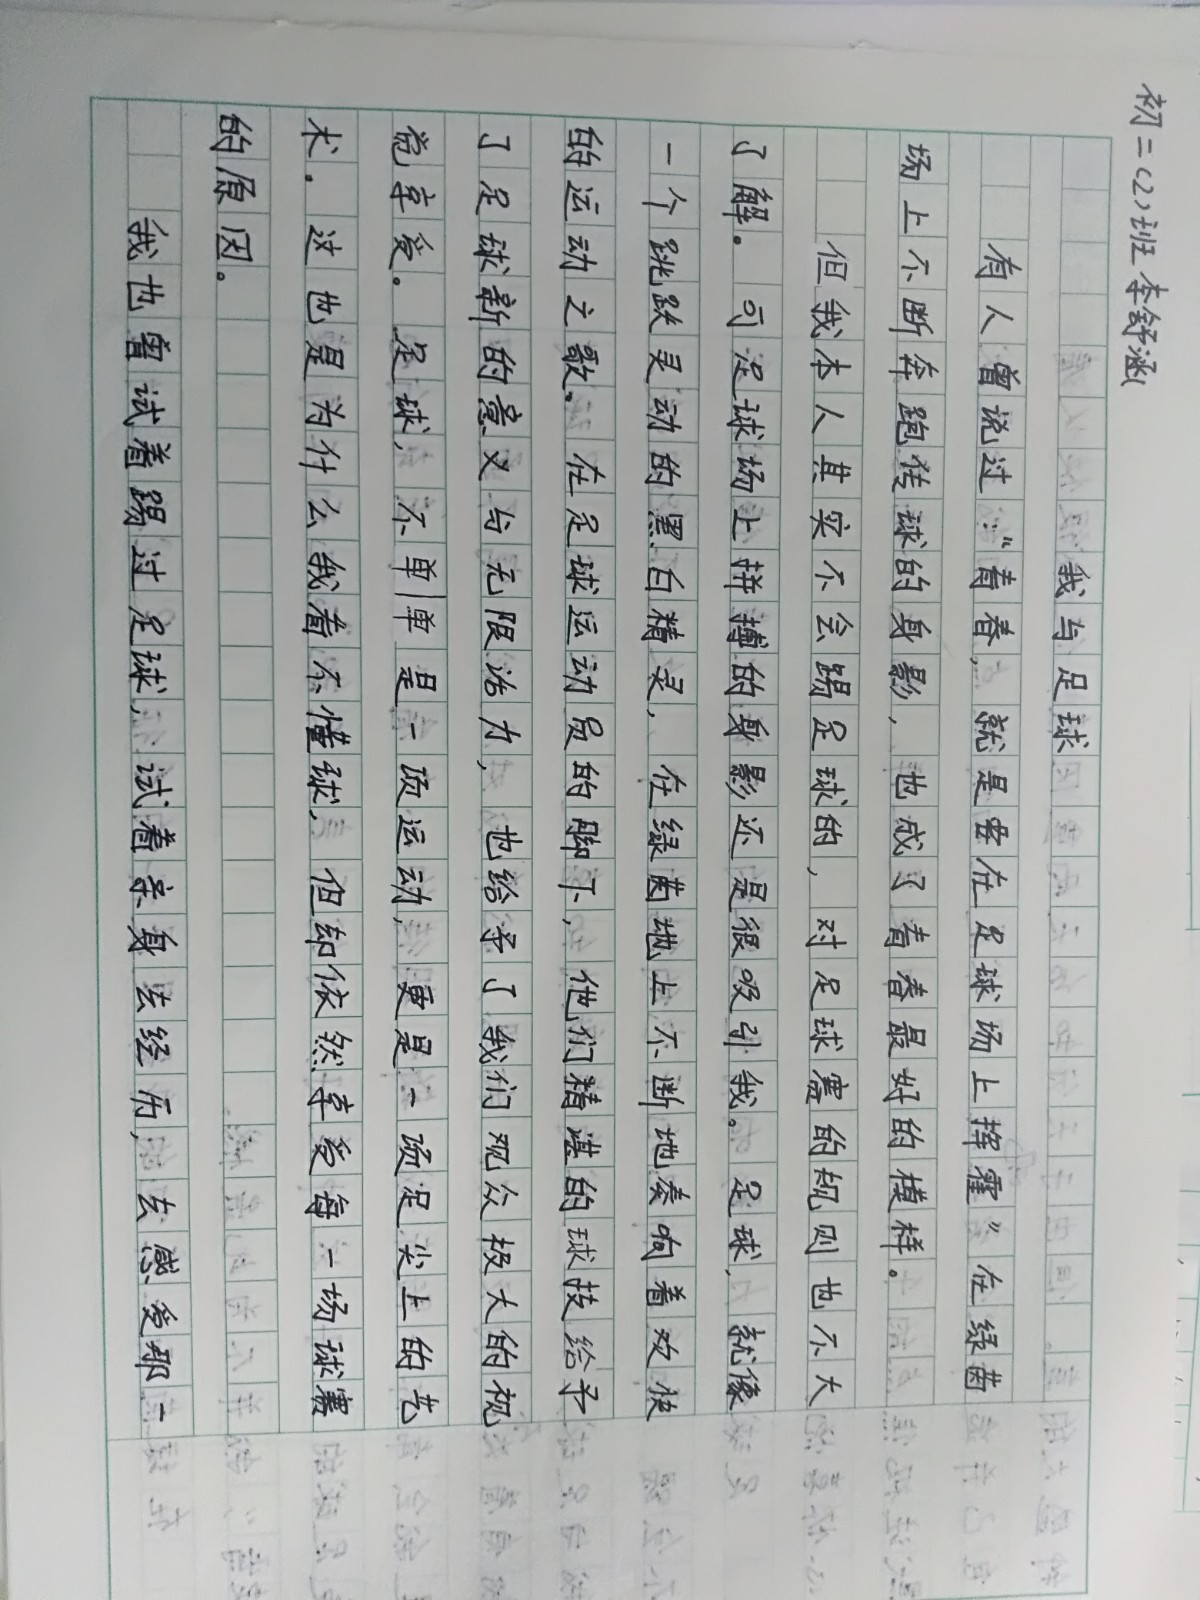 初二(2)班 李舒涵
我与足球
有人曾说过:“青春,就是要在足球场上挥霍”在绿茵
场上不断奔跑传球的身影,也成了青春最好的模样。
但我本人其实不会踢足球的,对足球赛的规则也不大
了解。可足球场上拼搏的身影还是很吸引我。足球,就像
一个跳跃灵动的黑白精灵,在绿茵地上不断地奏响着欢快
的运动之歌。在足球运动员的脚下,他们精湛的球技给予
了足球新的意义与无限活力,也给予了我们观众极大的视
觉享受。足球,不单单是一项运动,更是一场足尖上的艺
术。这也是为什么我看不懂球,但却依然享受每一场球赛
的原因。
我也曾试着踢过足球,试着亲身去经历,去感受那一